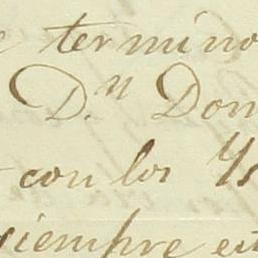 e termino
D.ⁿ Don
con los Ys
siempre est